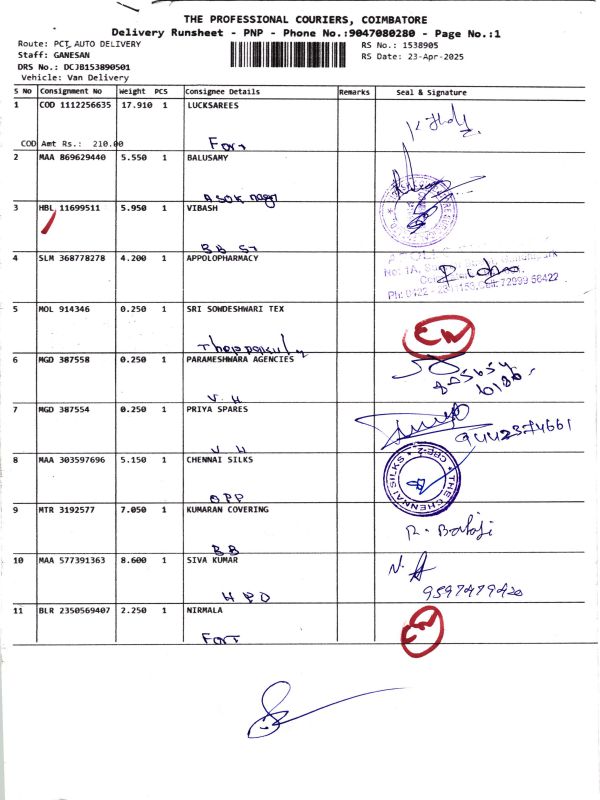 THE PROFESSIONAL COURIERS, COIMBATORE
Delivery Runsheet - PNP - Phone No.:9047080280 - Page No.:1
Route: PCT AUTO DELIVERY
RS No.: 1538905
Staff: GANESAN
RS Date: 23-Apr-2025
DRS No.: DCJB153890501
Vehicle: Van Delivery
S NO Consignment No Weight PCS Consignee Details Remarks Seal & Signature
1 COD 1112256635 17.910 1 LUCKSAREES
COD Amt Rs.: 210.00 Fort
2 MAA 869629440 5.550 1 BALUSAMY
ASOK nagr
3 HBL 11699511 5.950 1 VIBASH
BB St
4 SLM 368778278 4.200 1 APPOLOPHARMACY
No: 1A,
Ph: 0422 - Cell: 72999 56422
5 MOL 914346 0.250 1 SRI SOWDESHWARI TEX
6 MGD 387558 0.250 1 PARAMESHWARA AGENCIES
V. H
7 MGD 387554 0.250 1 PRIYA SPARES
9442374661
V. H
8 MAA 303597696 5.150 1 CHENNAI SILKS
THE CHENNAI SILKS CBE-2
OPP
9 MTR 3192577 7.050 1 KUMARAN COVERING
R. Balaji
BB
10 MAA 577391363 8.600 1 SIVA KUMAR
9597479420
HPO
11 BLR 2350569407 2.250 1 NIRMALA
Fort